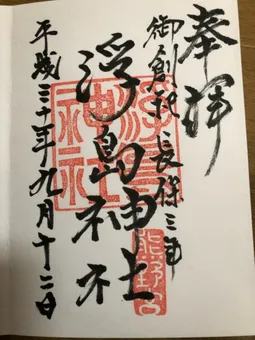 奉拝
御創祀長保三年
浮島神社
平成三十年九月十二日
浮島神社
熊野宮